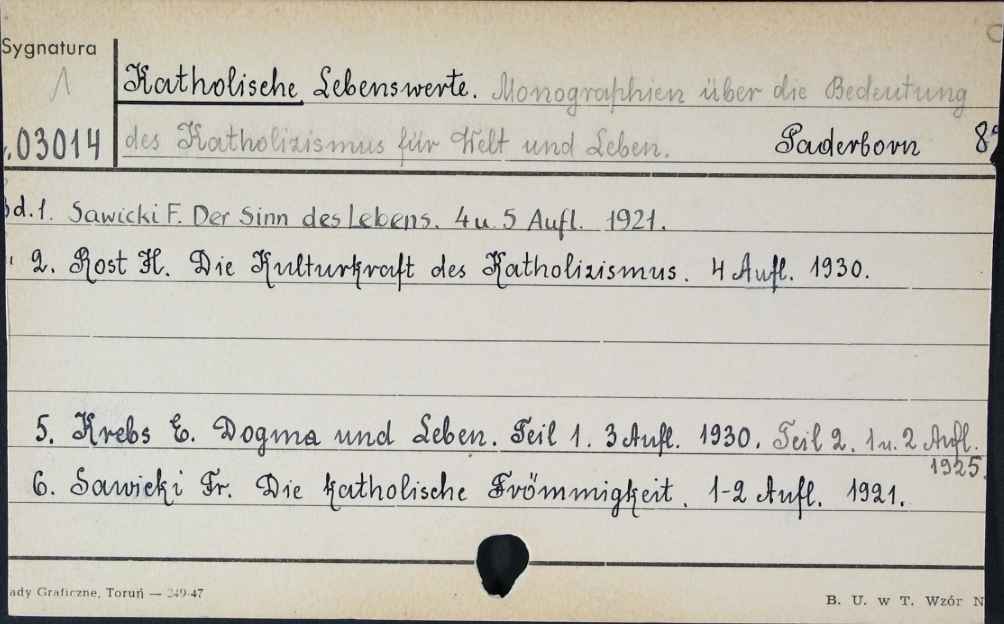 Sygnatura
1
03014
Katholische Lebenswerte. Monographien über die Bedeutung
des Katholizismus für Welt und Leben. Paderborn 8°
Bd. 1. Sawicki F. Der Sinn des Lebens. 4 u 5 Aufl. 1921.
" 2. Rost H. Die Kulturkraft des Katholizismus. 4 Aufl. 1930.
5. Krebs E. Dogma und Leben. Teil 1. 3 Aufl. 1930. Teil 2. 1 u. 2 Aufl.
1925.
6. Sawicki Fr. Die katholische Frömmigkeit. 1-2 Aufl. 1921.
ady Graficzne, Toruń — 249-47
B. U. w T. Wzór N